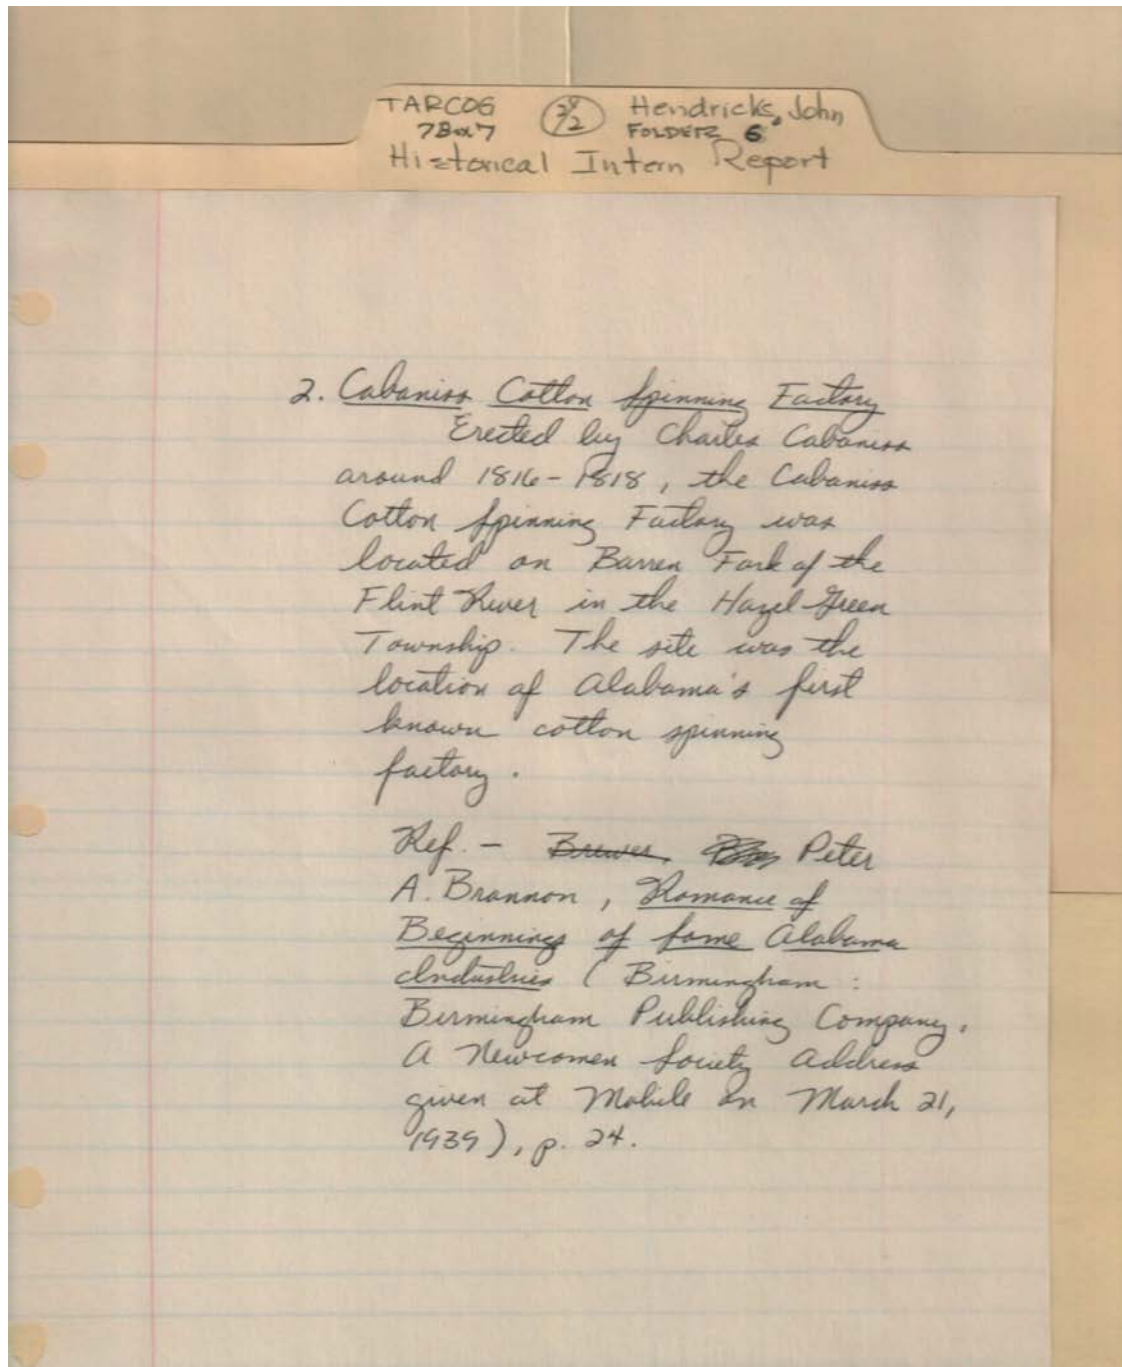 TARCOG 2/2 Hendricks, John
7Box7 FOLDER 6
Historical Intern Report
2. Cabaniss Cotton Spinning Factory
Erected by Charles Cabaniss
around 1816-1818, the Cabaniss
Cotton Spinning Factory was
located on Barren Fork of the
Flint River in the Hazel Green
Township. The site was the
location of Alabama's first
known cotton spinning
factory.
Ref. - Brewer, Peter
A. Brannon, Romance of
Beginnings of Some Alabama
Industries (Birmingham:
Birmingham Publishing Company,
A Newcomen Society Address
given at Mobile on March 21,
1939), p. 24.